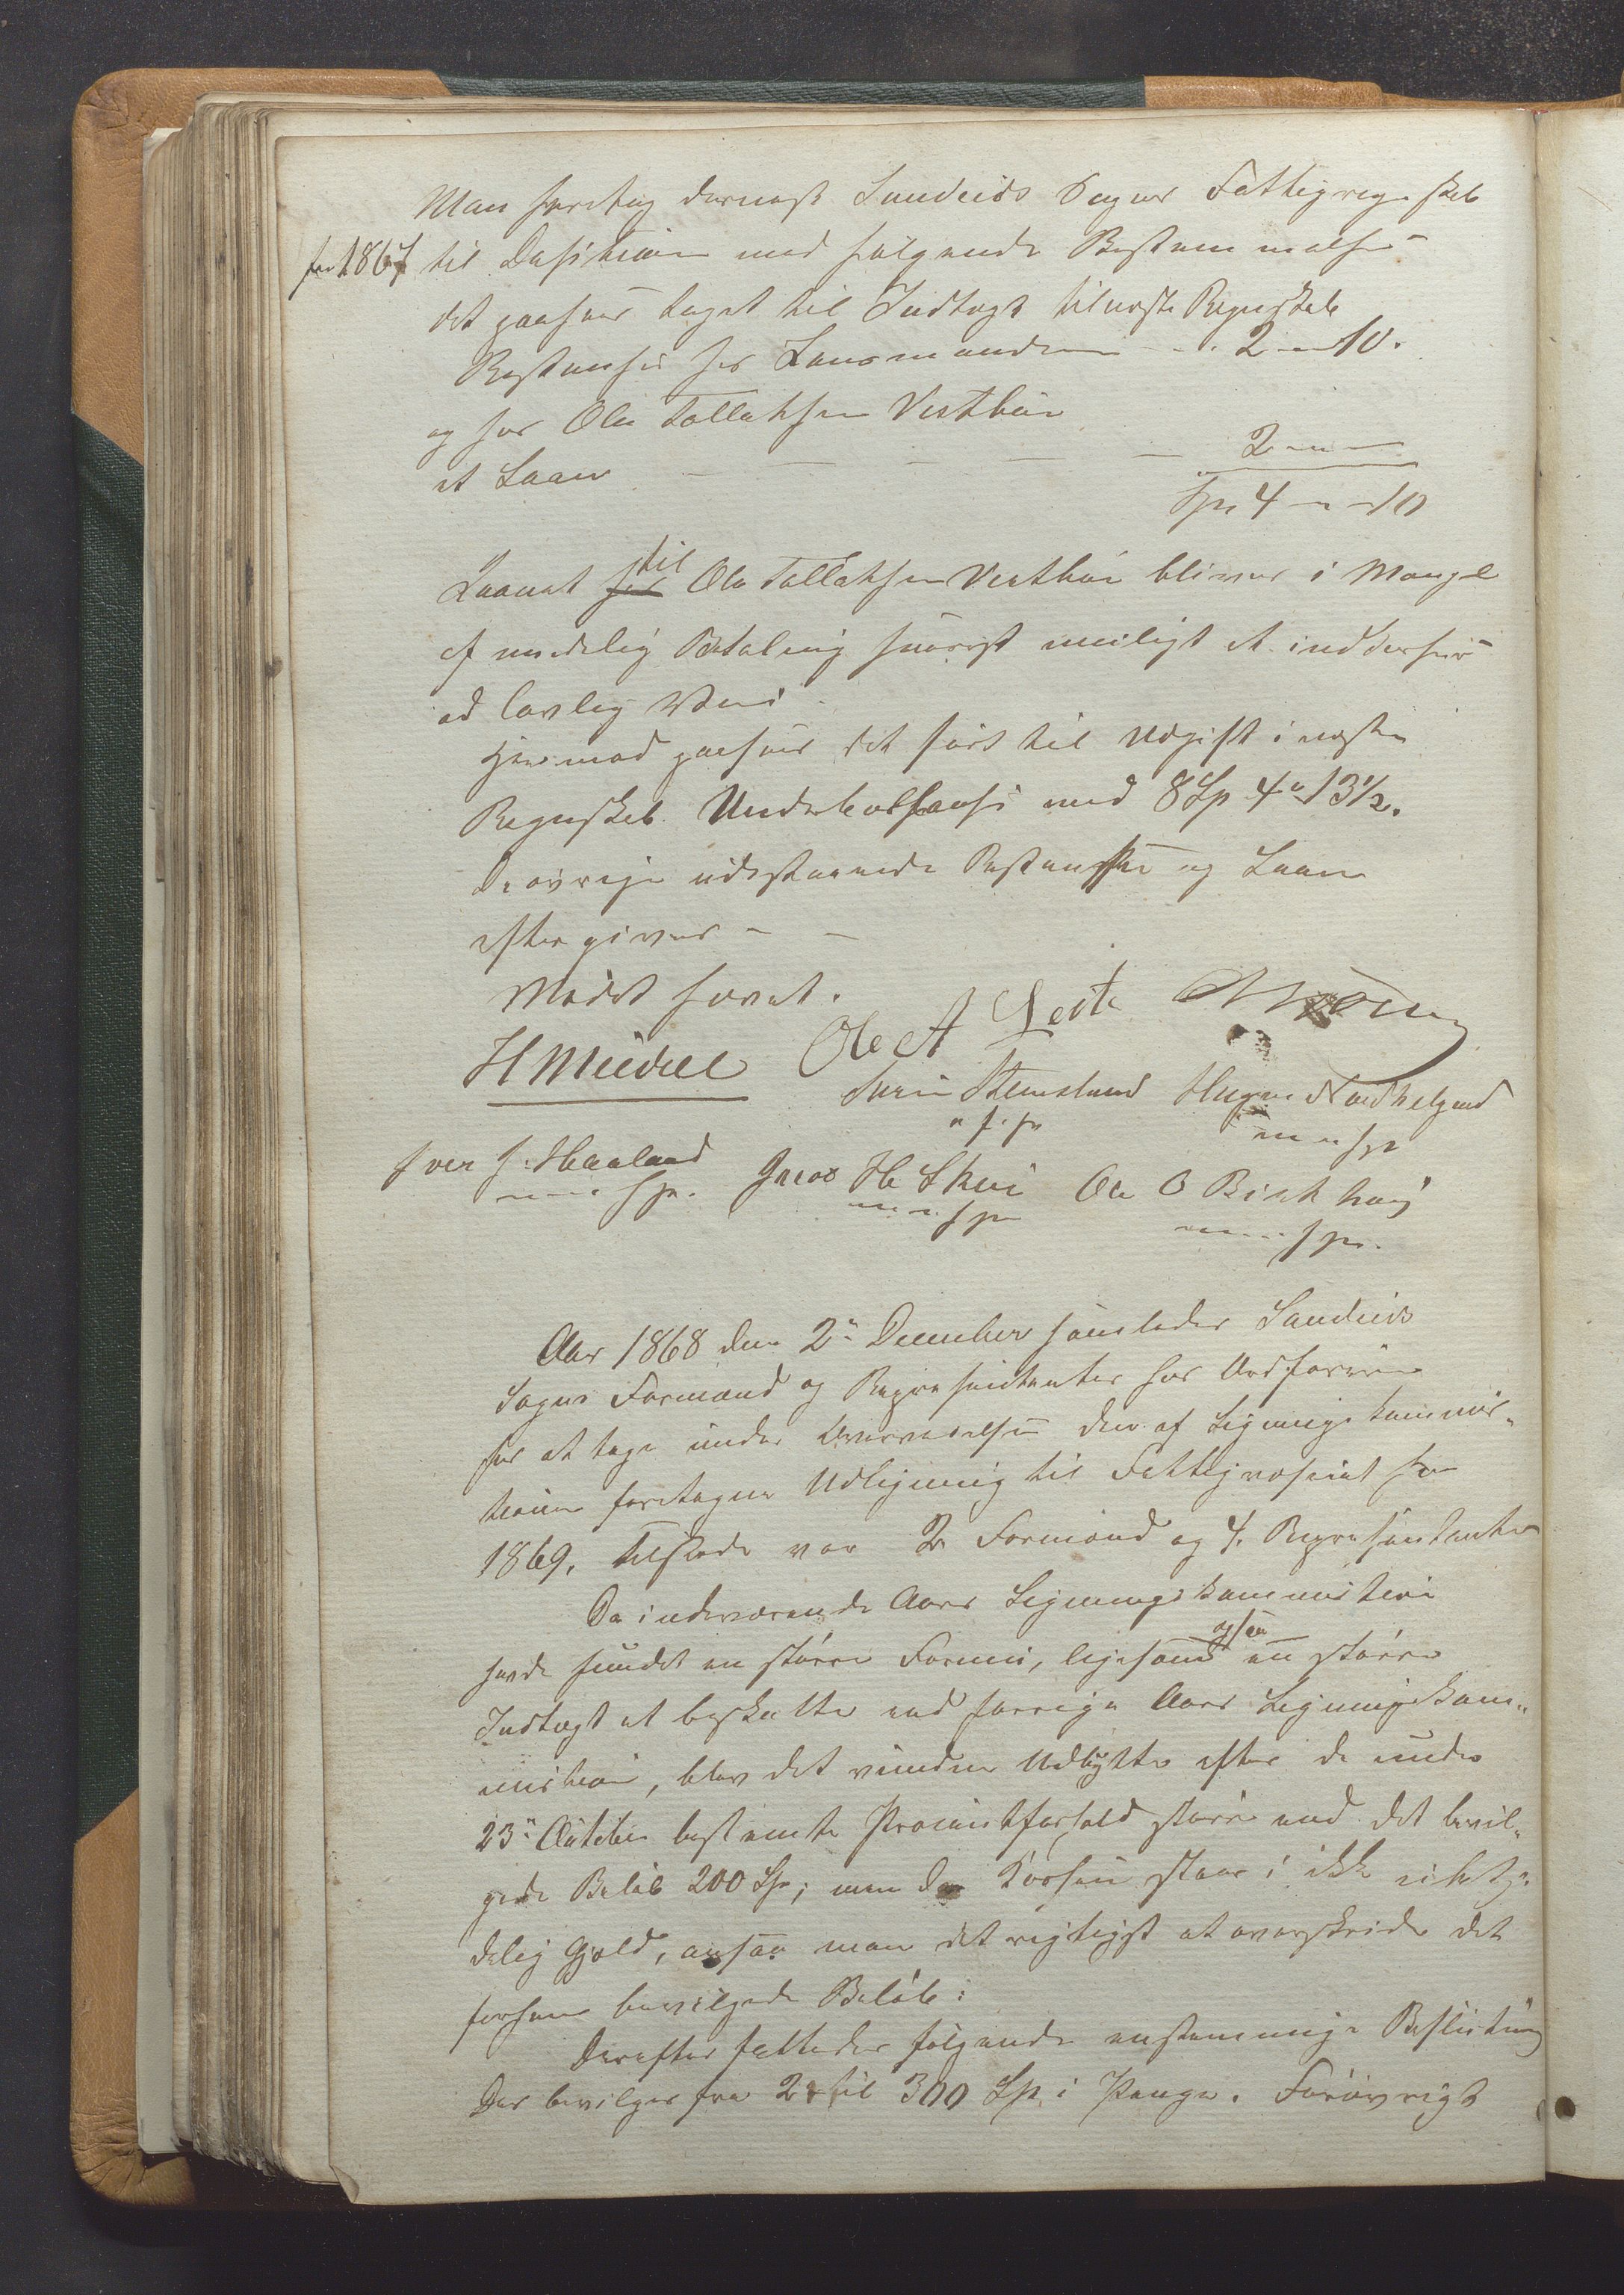 Man foretog dernæst Sandeids Sogns Fattigregnskab
for 1867 til Desition med følgende Bestemmelser
det paasees taget til Indtægt til næste Regnskab
Restanse hos Lensmanden - - - 2 - " - 10.
og hos Ole Tollaksen Vestbøe
et Laan - - - - - 2 - " -
Spd 4 - " - 10
Laanet til Ole Tollaksen Vestbøe bliver i Mangel
af mindelig Betaling snarest muligt at inddrive
ad lovlig Vei.
Hermod paasees det ført til Udgift i næste
Regnskab Underballanse med 8 Sp 4 " 13½.
De øvrige udestaaende Restanser og Laan
eftergives - -
Mødet hævet.
H Meidell Ole A Leite
Sven Stemsland
m.f.p.
m.f.p.
Iver J. Haaland Jacob H Skeie Ole O Birkhoug
m.f.p. m.f.p. m.f.p.
Aar 1868 den 2den December samledes Sandeids
Sogns Formænd og Repræsentanter hos Ordføreren
for at tage under Overveielse den af Ligningskommis-
tionen foretagne Udligning til Fattigvæsenet for
1869. Tilstede var 2 Formænd og 4 Repræsentanter
Da indeværende Aars Ligningskommistion
havde fundet en større Formue, ligesom ogsaa en større
Indtægt at beskatte end forrige Aars Ligningskom-
mistion, blev det vundne Udbytte efter de under
23de October bestemte Procentforhold større end det bevil-
gede Beløb 200 Sp; men da Kassen staar i ikke ubety-
delig Gjæld, ansaa man det rigtigst at overskride det
forhen bevilgede Beløb:
Derefter fattedes følgende enstemmige Beslutning
Der bevilges fra 2 til 300 Sp i Penge. Forøvrigt